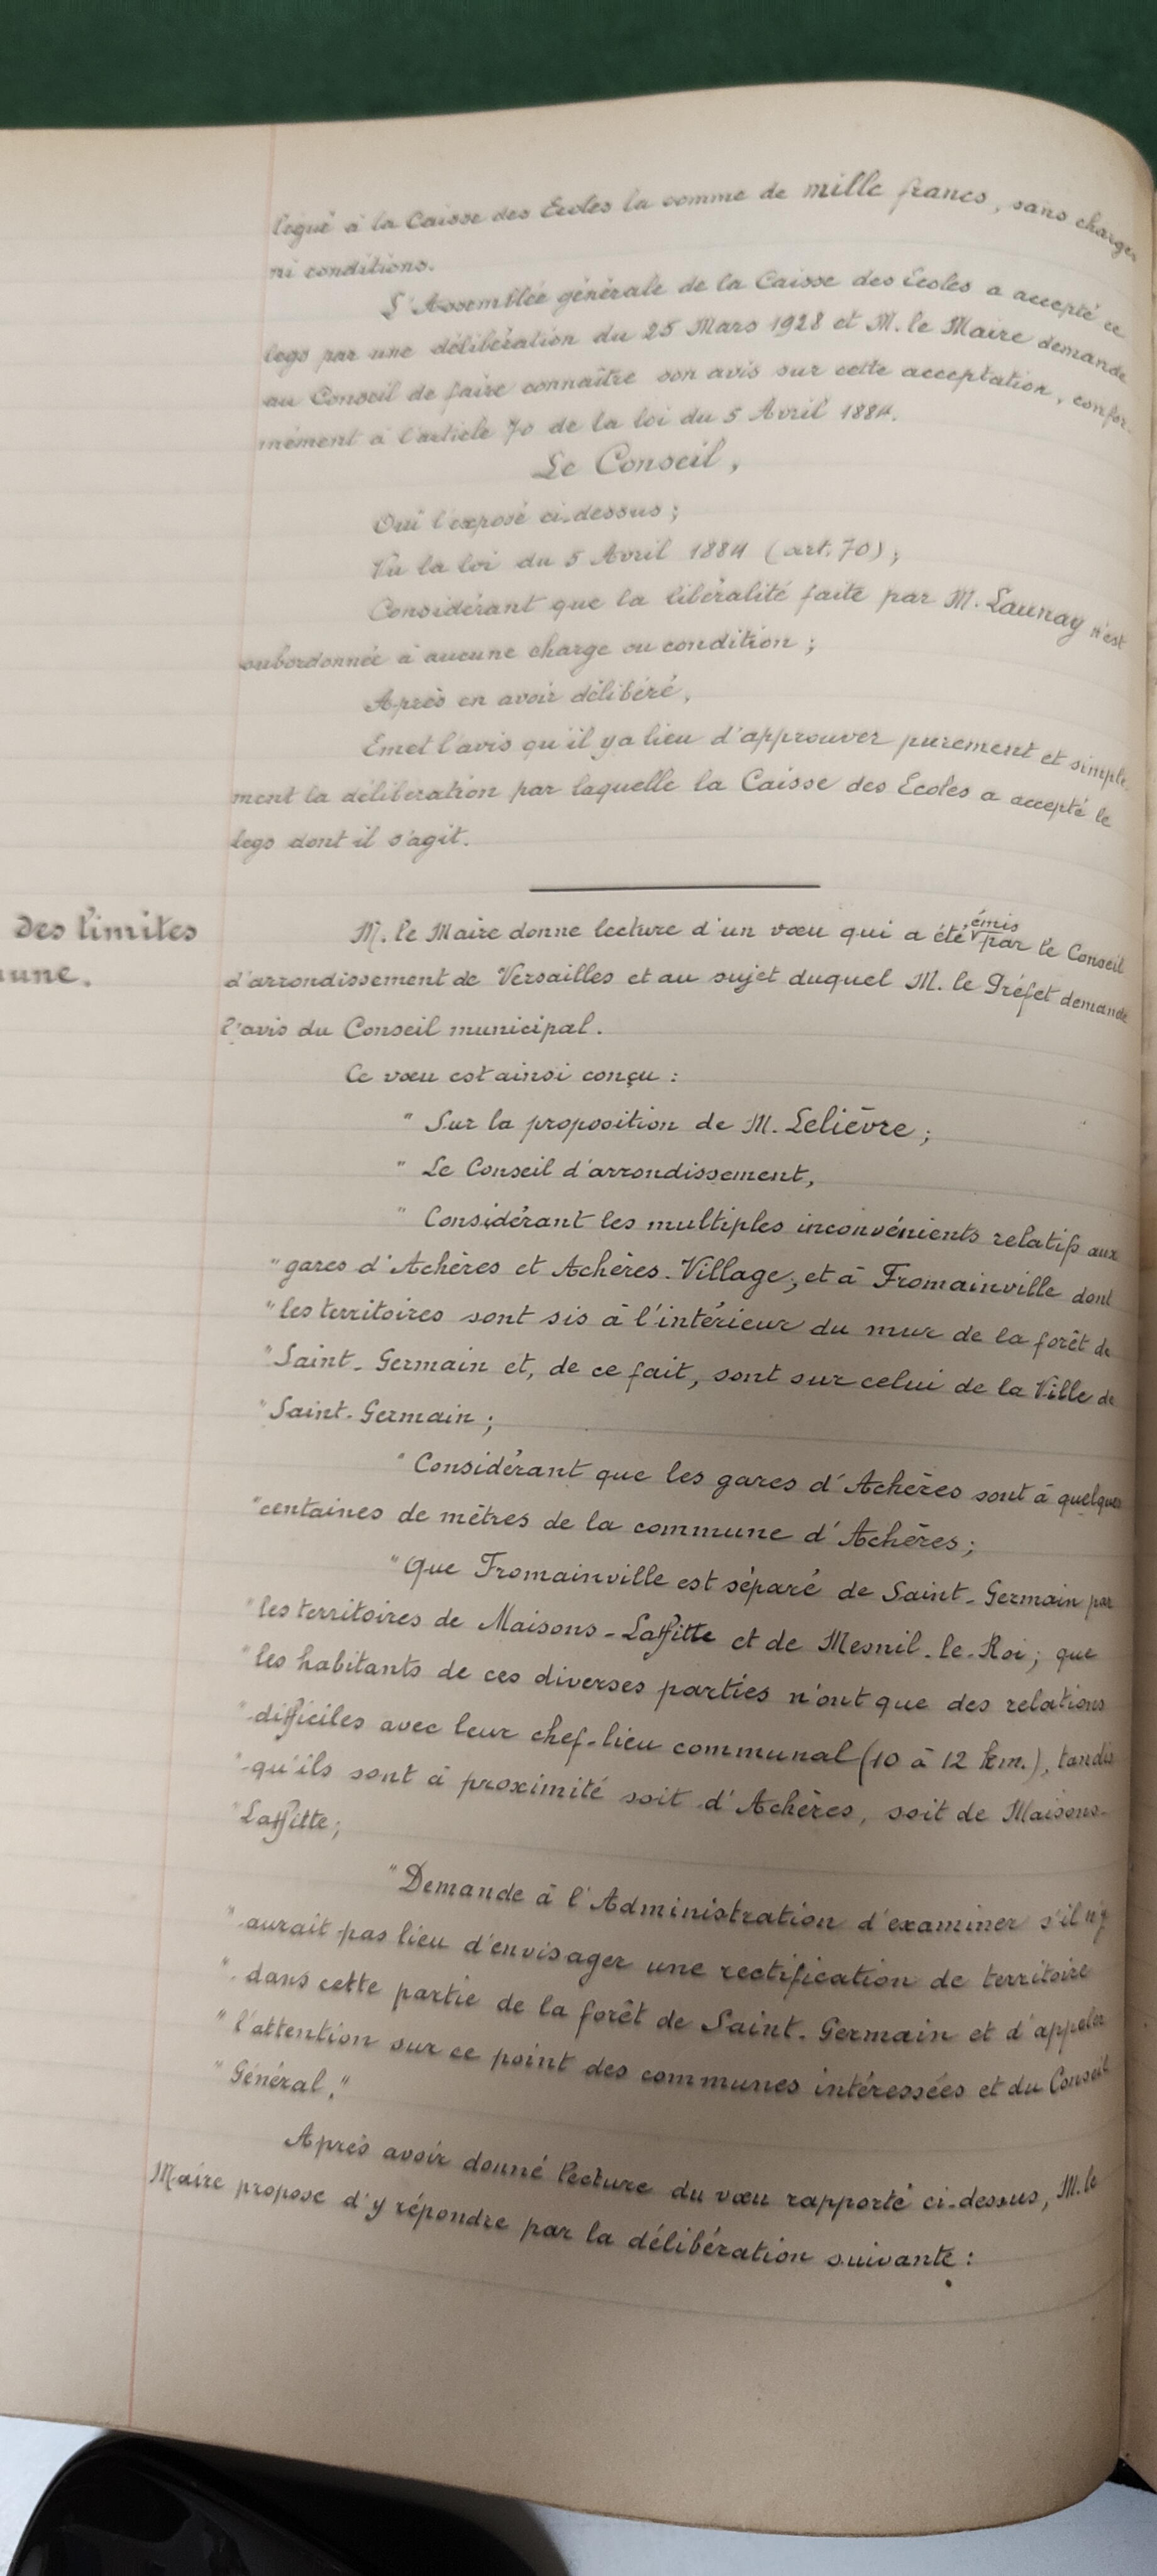 légué à la Caisse des Ecoles la somme de mille francs, sans charges
ni conditions.
L'Assemblée générale de la Caisse des Ecoles a accepté ce
legs par une délibération du 25 Mars 1928 et M. le Maire demande
au Conseil de faire connaître son avis sur cette acceptation, confor-
mément à l'article 70 de la loi du 5 Avril 1884.
Le Conseil,
Ouï l'exposé ci-dessus ;
Vu la loi du 5 Avril 1884 (art. 70) ;
Considérant que la libéralité faite par M. Launay n'est
subordonnée à aucune charge ou condition ;
Après en avoir délibéré,
Emet l'avis qu'il y a lieu d'approuver purement et simple-
ment la délibération par laquelle la Caisse des Ecoles a accepté le
legs dont il s'agit.
des limites
une.
M. le Maire donne lecture d'un vœu qui a été émis par le Conseil
d'arrondissement de Versailles et au sujet duquel M. le Préfet demande
l'avis du Conseil municipal.
Ce vœu est ainsi conçu :
" Sur la proposition de M. Lelièvre ;
" Le Conseil d'arrondissement,
" Considérant les multiples inconvénients relatifs aux
" gares d'Achères et Achères-Village, et à Fromainville dont
" les territoires sont sis à l'intérieur du mur de la forêt de
" Saint-Germain et, de ce fait, sont sur celui de la Ville de
" Saint-Germain ;
" Considérant que les gares d'Achères sont à quelques
" centaines de mètres de la commune d'Achères ;
" Que Fromainville est séparé de Saint-Germain par
" les territoires de Maisons-Laffitte et de Mesnil-le-Roi ; que
" les habitants de ces diverses parties n'ont que des relations
" difficiles avec leur chef-lieu communal (10 à 12 km.), tandis
" qu'ils sont à proximité soit d'Achères, soit de Maisons-
" Laffitte ;
" Demande à l'Administration d'examiner s'il n'y
" aurait pas lieu d'envisager une rectification de territoire
" dans cette partie de la forêt de Saint-Germain et d'appeler
" l'attention sur ce point des communes intéressées et du Conseil
" Général."
Après avoir donné lecture du vœu rapporté ci-dessus, M. le
Maire propose d'y répondre par la délibération suivante :